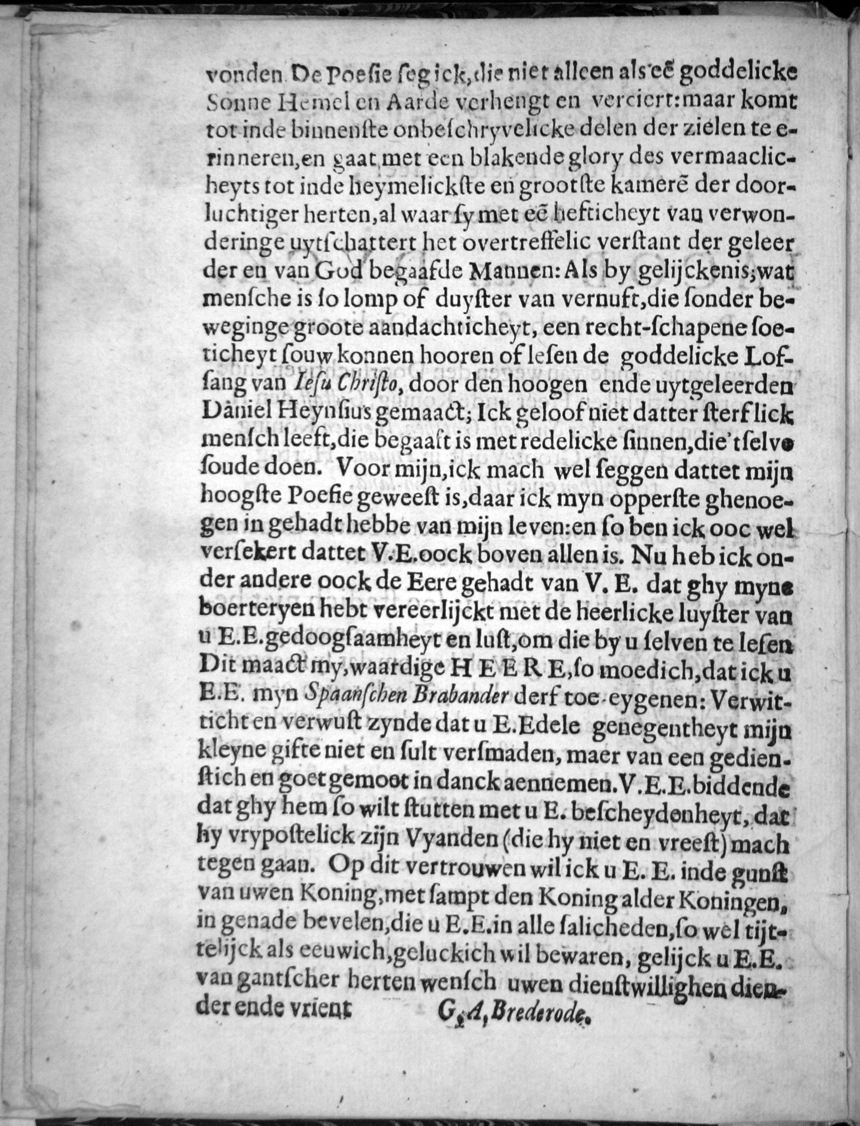 vonden De Poeſie ſeg ick, die niet alleen als eẽ goddelicke
Sonne Hemel en Aarde verhengt en verciert: maar komt
tot inde binnenſte onbeſchryvelicke delen der zielen te e-
rinneren, en gaat met een blakende glory des vermaaclic-
heyts tot inde heymelickſte en grootſte kamerẽ der door-
luchtiger herten, al waar ſy met eẽ hefticheyt van verwon-
deringe uytſchattert het overtreffelic verſtant der geleer
der en van God begaafde Mannen: Als by gelijckenis; wat
menſche is ſo lomp of duyſter van vernuft, die ſonder be-
weginge groote aandachticheyt, een recht-ſchapene ſoe-
ticheyt ſouw konnen hooren of leſen de goddelicke Lof-
ſang van Ieſu Chriſto, door den hoogen ende uytgeleerden
Daniel Heynſius gemaact; Ick geloof niet datter ſterflick
menſch leeft, die begaaft is met redelicke ſinnen, die 'tſelve
ſoude doen. Voor mijn, ick mach wel ſeggen dattet mijn
hoogſte Poeſie geweeſt is, daar ick myn opperſte ghenoe-
gen in gehadt hebbe van mijn leven: en ſo ben ick ooc wel
verſekert dattet V.E. oock boven allen is. Nu heb ick on-
der andere oock de Eere gehadt van V. E. dat ghy myne
boerteryen hebt vereerlijckt met de heerlicke luyſter van
u E.E. gedoogſaamheyt en luſt, om die by u ſelven te leſen
Dit maact my, waardige HEERE, ſo moedich, dat ick u
E.E. myn Spaanſchen Brabander derf toe-eygenen: Verwit-
ticht en verwuſt zynde dat u E. Edele genegentheyt mijn
kleyne gifte niet en ſult verſmaden, maer van een gedien-
ſtich en goet gemoot in danck aennemen. V.E.E. biddende
dat ghy hem ſo wilt ſtutten met u E. beſcheydenheyt, dat
hy vrypoſtelick zijn Vyanden (die hy niet en vreeſt) mach
tegen gaan. Op dit vertrouwen wil ick u E. E. inde gunſt
van uwen Koning, met ſampt den Koning alder Koningen,
in genade bevelen, die u E.E. in alle ſalicheden, ſo wel tijt-
telijck als eeuwich, geluckich wil bewaren, gelijck u E.E.
van gantſcher herten wenſch uwen dienſtwillighen dien-
der ende vrient G, A, Brederode.